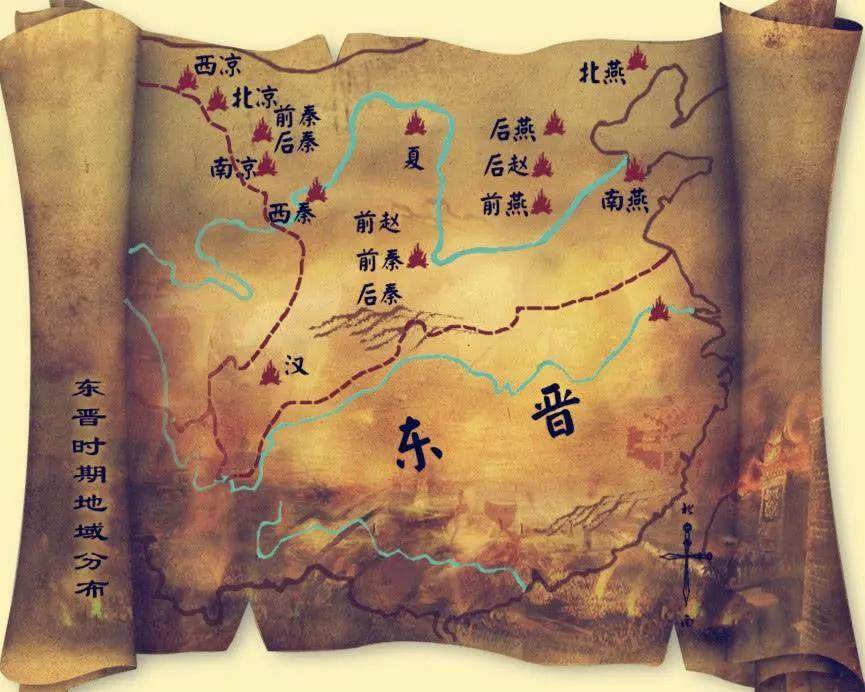 西凉
北凉
前秦
后秦
南凉
西秦
夏
北燕
后燕
后赵
前燕
南燕
前赵
前秦
后秦
汉
东晋
东晋时期地域分布
北
南